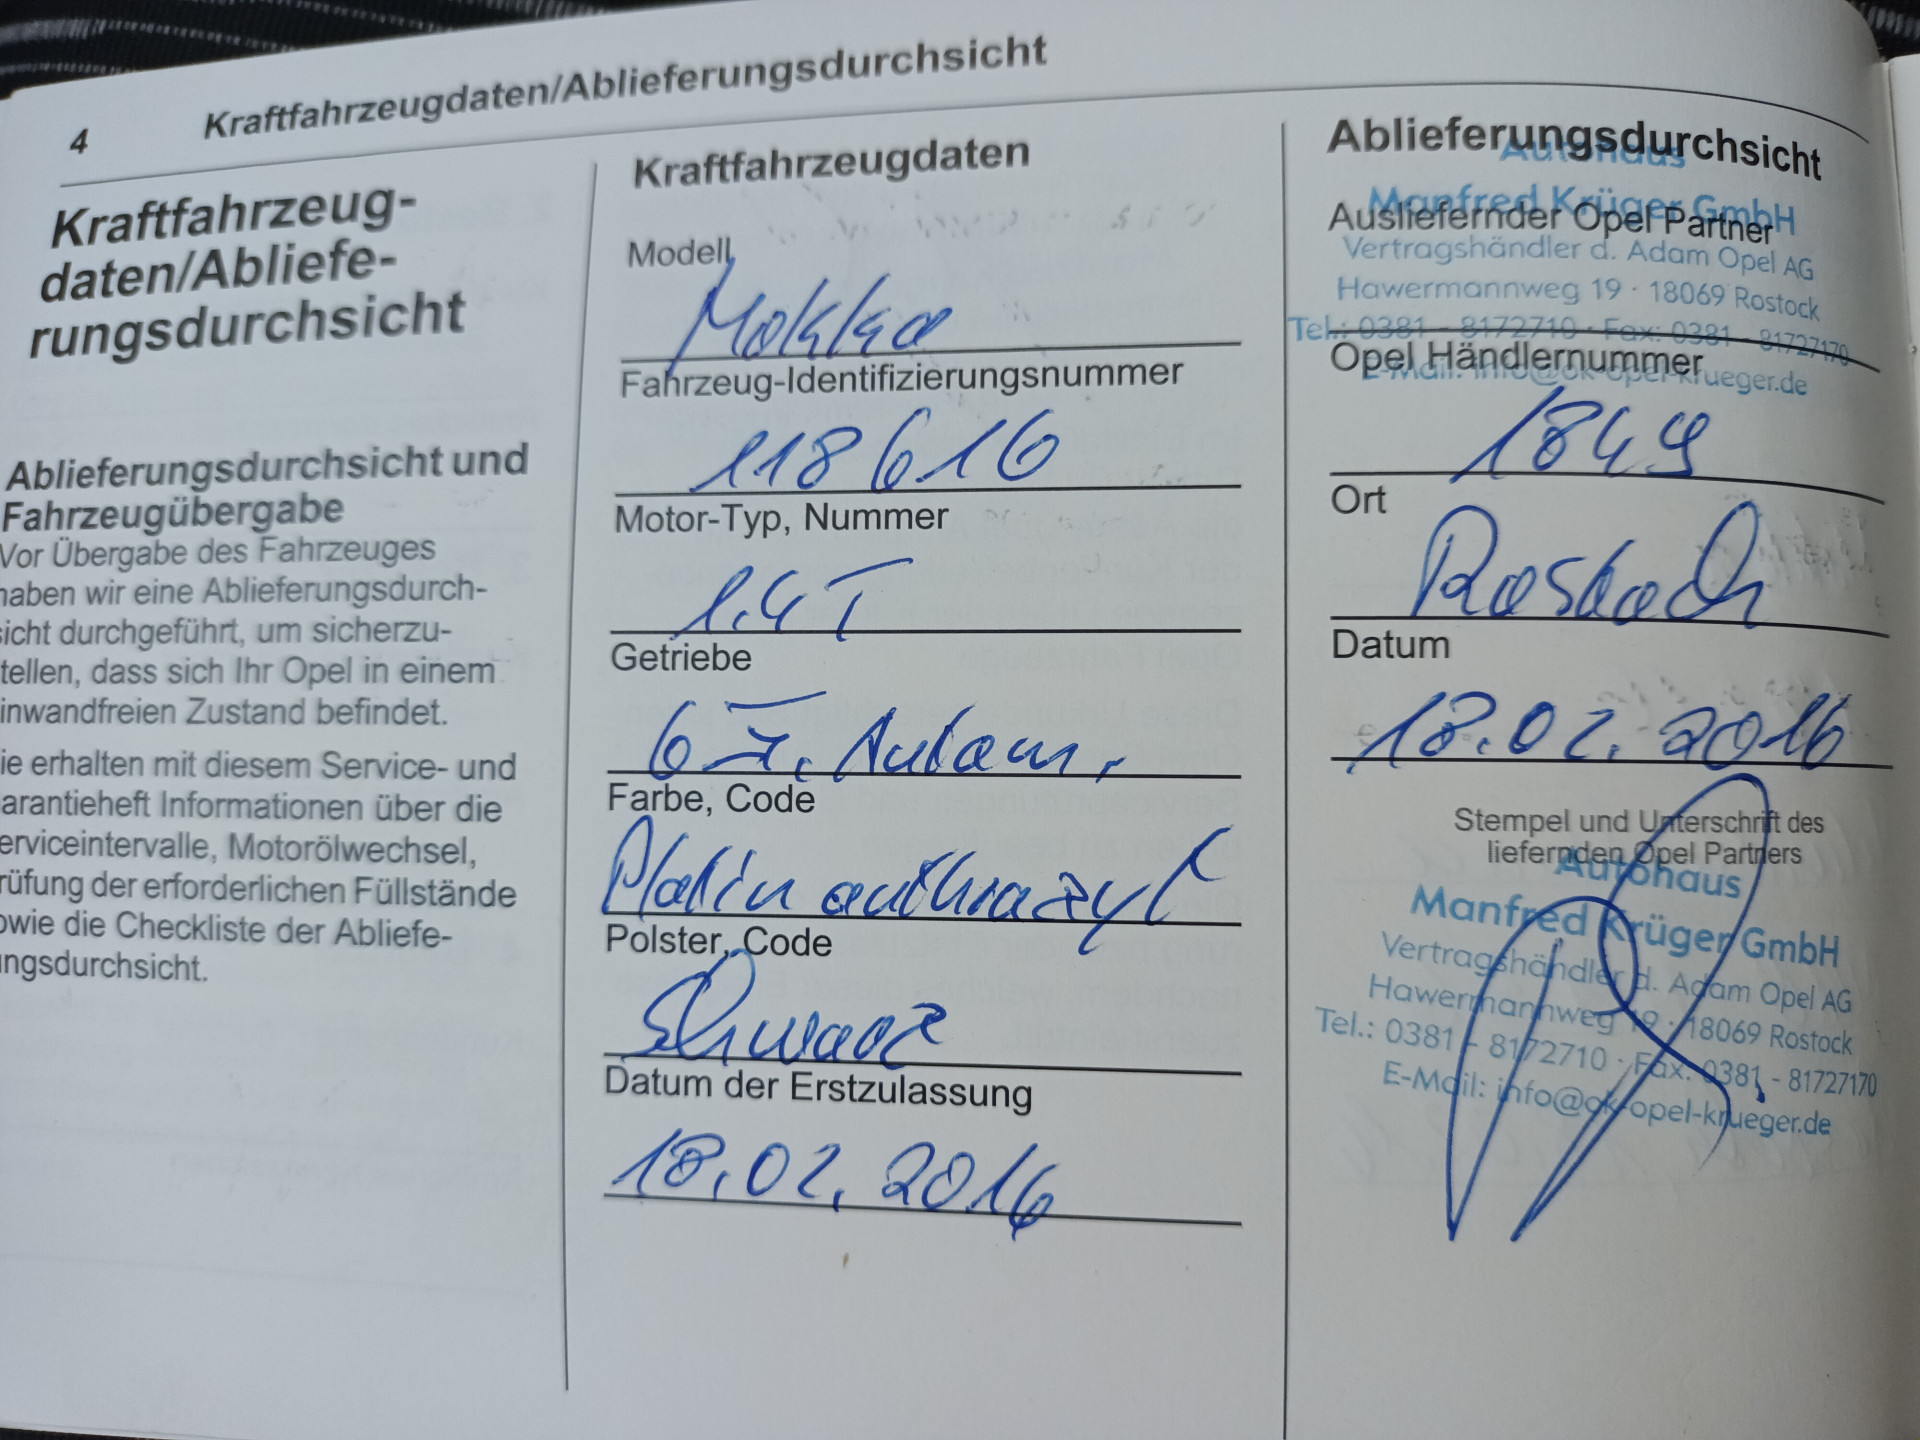 4 Kraftfahrzeugdaten/Ablieferungsdurchsicht
Kraftfahrzeug-
daten/Abliefe-
rungsdurchsicht
Ablieferungsdurchsicht und
Fahrzeugübergabe
Vor Übergabe des Fahrzeuges
haben wir eine Ablieferungsdurch-
sicht durchgeführt, um sicherzu-
tellen, dass sich Ihr Opel in einem
inwandfreien Zustand befindet.
ie erhalten mit diesem Service- und
arantieheft Informationen über die
erviceintervalle, Motorölwechsel,
rüfung der erforderlichen Füllstände
owie die Checkliste der Abliefe-
ngsdurchsicht.
Kraftfahrzeugdaten
Modell
Mokka
Fahrzeug-Identifizierungsnummer
118616
Motor-Typ, Nummer
1.4T
Getriebe
6 Autom.
Farbe, Code
Platin anthrazyt
Polster, Code
Schwarz
Datum der Erstzulassung
18.02.2016
Ablieferungsdurchsicht
Autohaus
Manfred Krüger GmbH
Ausliefernder Opel Partner
Vertragshändler d. Adam Opel AG
Hawermannweg 19 · 18069 Rostock
Tel.: 0381 - 8172710 · Fax: 0381 - 81727170
Opel Händlernummer
E-Mail: info@ok-opel-krueger.de
1849
Ort
Rostock
Datum
18.02.2016
Stempel und Unterschrift des
liefernden Opel Partners
Autohaus
Manfred Krüger GmbH
Vertragshändler d. Adam Opel AG
Hawermannweg 19 · 18069 Rostock
Tel.: 0381 - 8172710 · Fax: 0381 - 81727170
E-Mail: info@ok-opel-krueger.de